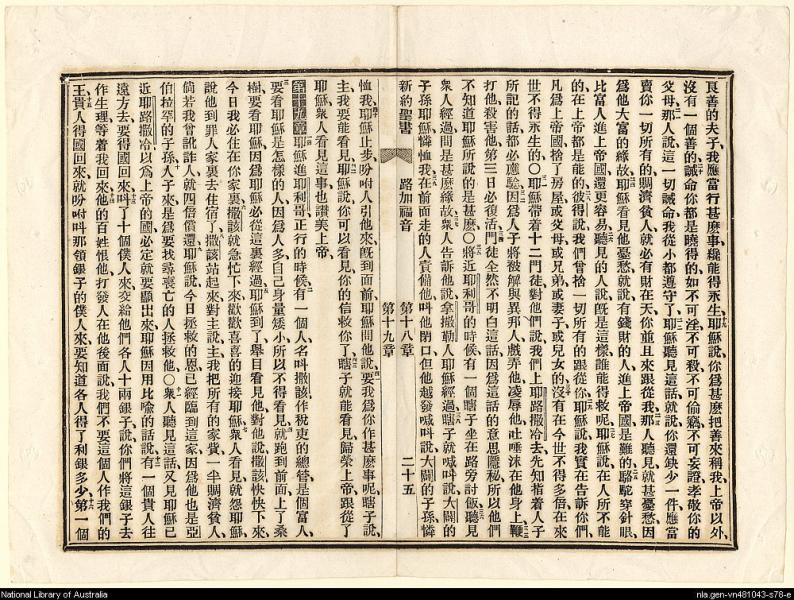 良善的夫子、我應當行甚麼事、纔能得永生、耶穌說、你爲甚麼把善來稱我、上帝以外
沒有一個善的、誡命你都是曉得的、如不可淫、不可殺、不可偷竊、不可妄證、孝敬你的
父母、那人說、這一切誡命、我從小都遵守了、耶穌聽見這話、就說、你還缺少一件、應當
賣你一切所有的、賙濟貧人、就必有財在天、你並且來跟從我、那人聽見、就甚憂愁、因
爲他大富的緣故、耶穌看見他憂愁、就說、有錢財的人、進上帝國是難的、駱駝穿針眼、
比富人進上帝國、還更容易、聽見的人說、旣是這樣、誰能得救呢、耶穌說、在人所不能
的、在上帝都是能的、彼得說、我們曾捨一切所有的跟從你、耶穌說、我實在告訴你們、
凡爲上帝國、捨了房屋、或父母、或兄弟、或妻子、或兒女的、沒有在今世不得多倍、在來
世不得永生的、○耶穌帶着十二門徒、對他們說、我們上耶路撒冷去、先知指着人子
所記的話、都必應驗、因爲人子將被解與異邦人、戲弄他、凌辱他、吐唾沫在他身上、鞭
打他、殺害他、第三日必復活、門徒全然不明白這話、因爲這話的意思隱秘、所以他們
不知道耶穌所說的是甚麼、○將近耶利哥的時候、有一個瞎子、坐在路旁討飯、聽見
衆人經過、問是甚麼緣故、衆人告訴他說、拿撒勒人耶穌經過、瞎子就喊叫說、大闢的
子孫耶穌、憐恤我、在前面走的人、責備他、叫他閉口、但他越發喊叫說、大闢的子孫、憐
新約聖書 路加福音 第十八章 第十九章 二十五
恤我、耶穌止步、吩咐人引他來、旣到面前、耶穌問他說、要我爲你作甚麼事呢、瞎子說、
主、我要能看見、耶穌說、你可以看見、你的信救你了、瞎子就能看見、歸榮上帝、跟從了
耶穌、衆人看見這事、也讚美上帝、
第十九章 耶穌進耶利哥、正行的時候、有一個人、名叫撒該、作稅吏的總管、是個富人、
要看見耶穌是怎樣的人、因爲人多、自己身量矮小、所以不得看見、就跑到前面、上了桑
樹、要看見耶穌、因爲耶穌必從這裏經過、耶穌到了、舉目看見他、對他說、撒該、快快下來、
今日我必住在你家裏、撒該就急忙下來、歡歡喜喜的迎接耶穌、衆人看見、就怨耶穌、
說、他到罪人家裏去住宿了、撒該站起來、對主說、主、我把所有的家貲、一半賙濟貧人、
倘若我曾訛詐人、就四倍償還、耶穌說、今日拯救的恩、已經臨到這家、因爲他也是亞
伯拉罕的子孫、人子來、是爲要找尋喪亡的人、拯救他、○衆人聽見這話、又見耶穌已
近耶路撒冷、以爲上帝的國必定就要顯出來、耶穌因用比喻的話說、有一個貴人、往
遠方去、要得國回來、叫了十個僕人來、交給他們各人十兩銀子、說、你們將這銀子去
作生理、等着我回來、他的百姓恨他、打發人在他後面說、我們不要這個人作我們的
王、貴人得國回來、就吩咐叫那領銀子的僕人來、要知道各人得了利銀多少、第一個
National Library of Australia
nla.gen-vn481043-s78-e